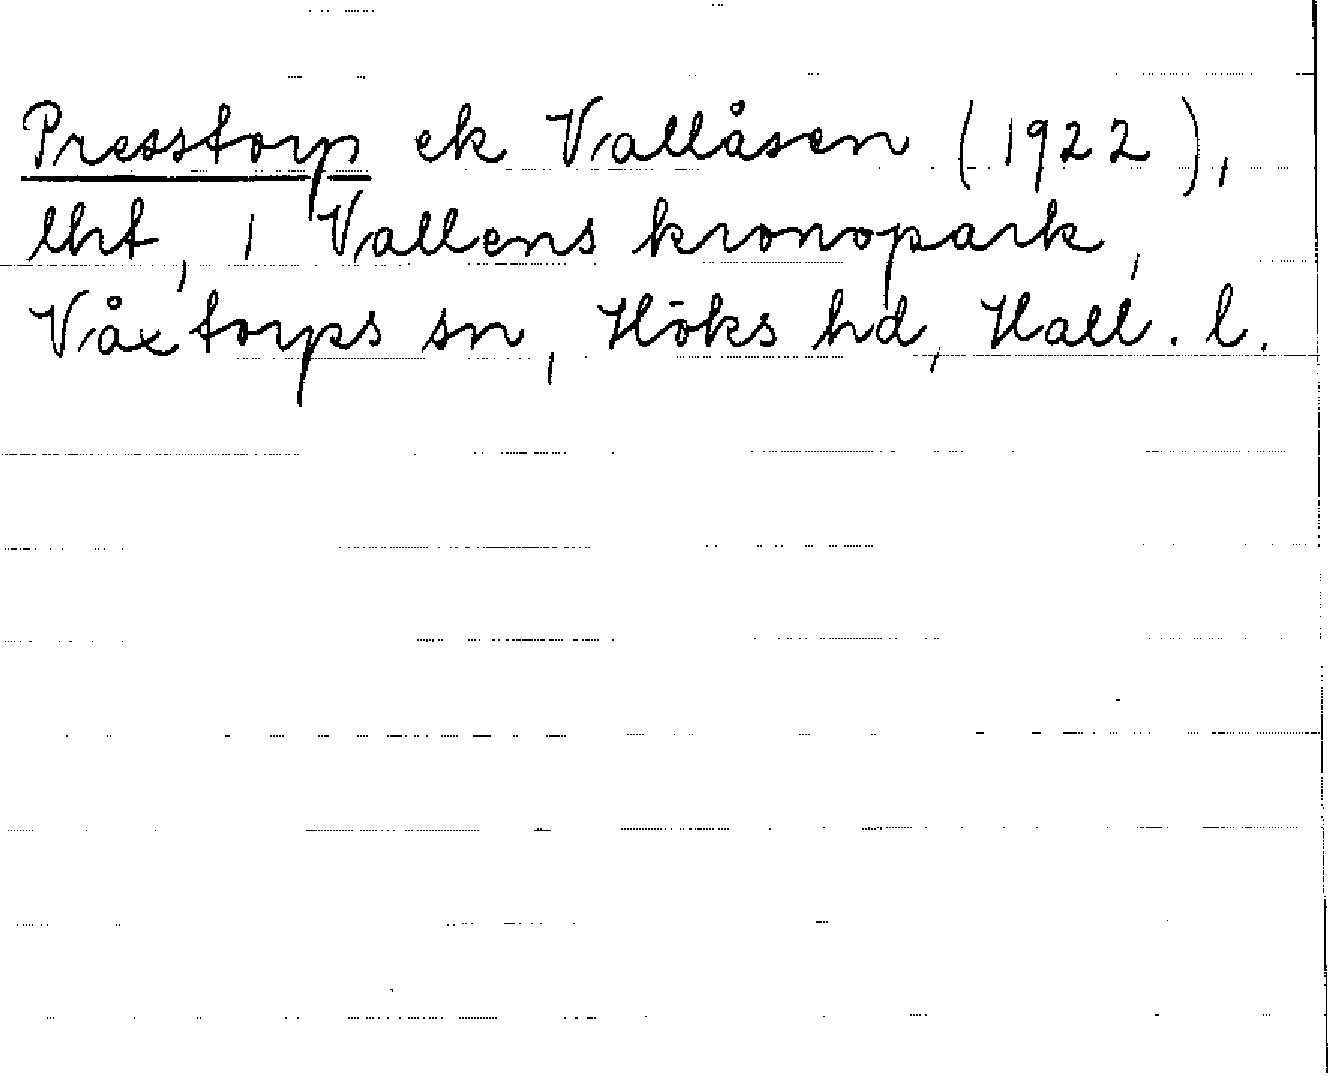 Presstorp ek Vallåsen (1922),
lht, i Vallens kronopark,
Våxtorps sn, Höks hd, Hall. l.